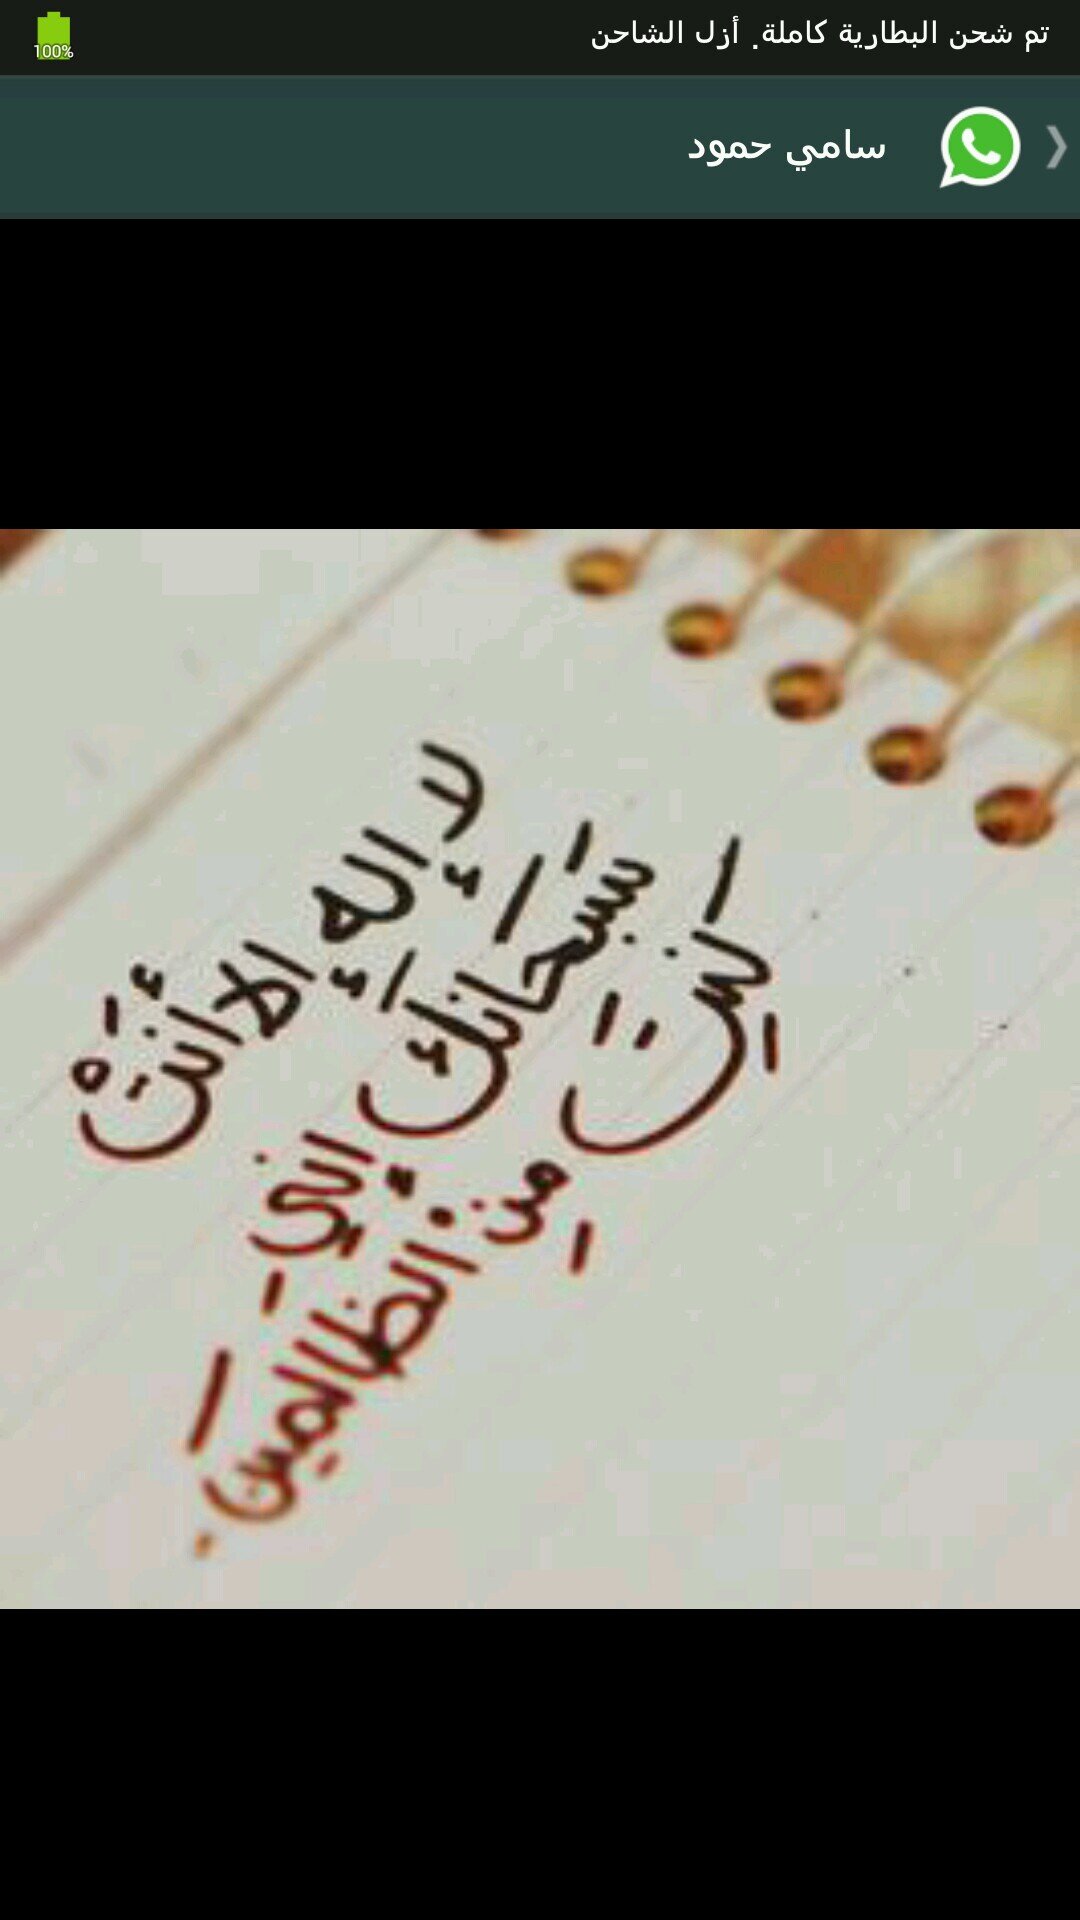 تم شحن البطارية كاملة. أزل الشاحن
100%
سامي حمود
لا إله إلا أنتَ
سبحانك إني
كنت من الظالمين.